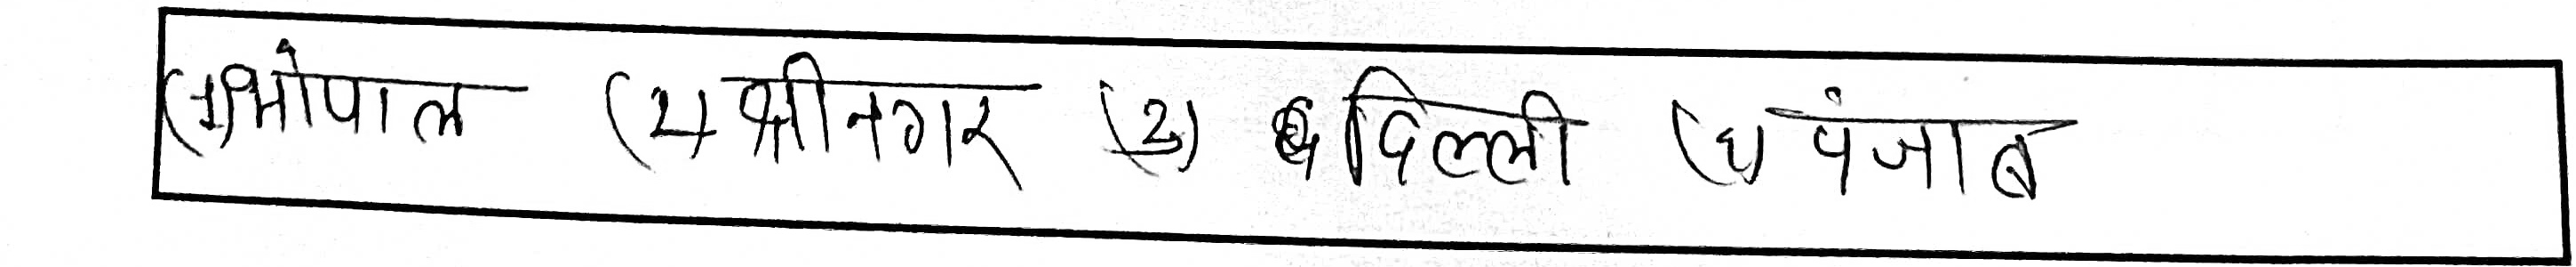 (1) भोपाल (2) श्रीनगर (3) दिल्ली (4) पंजाब